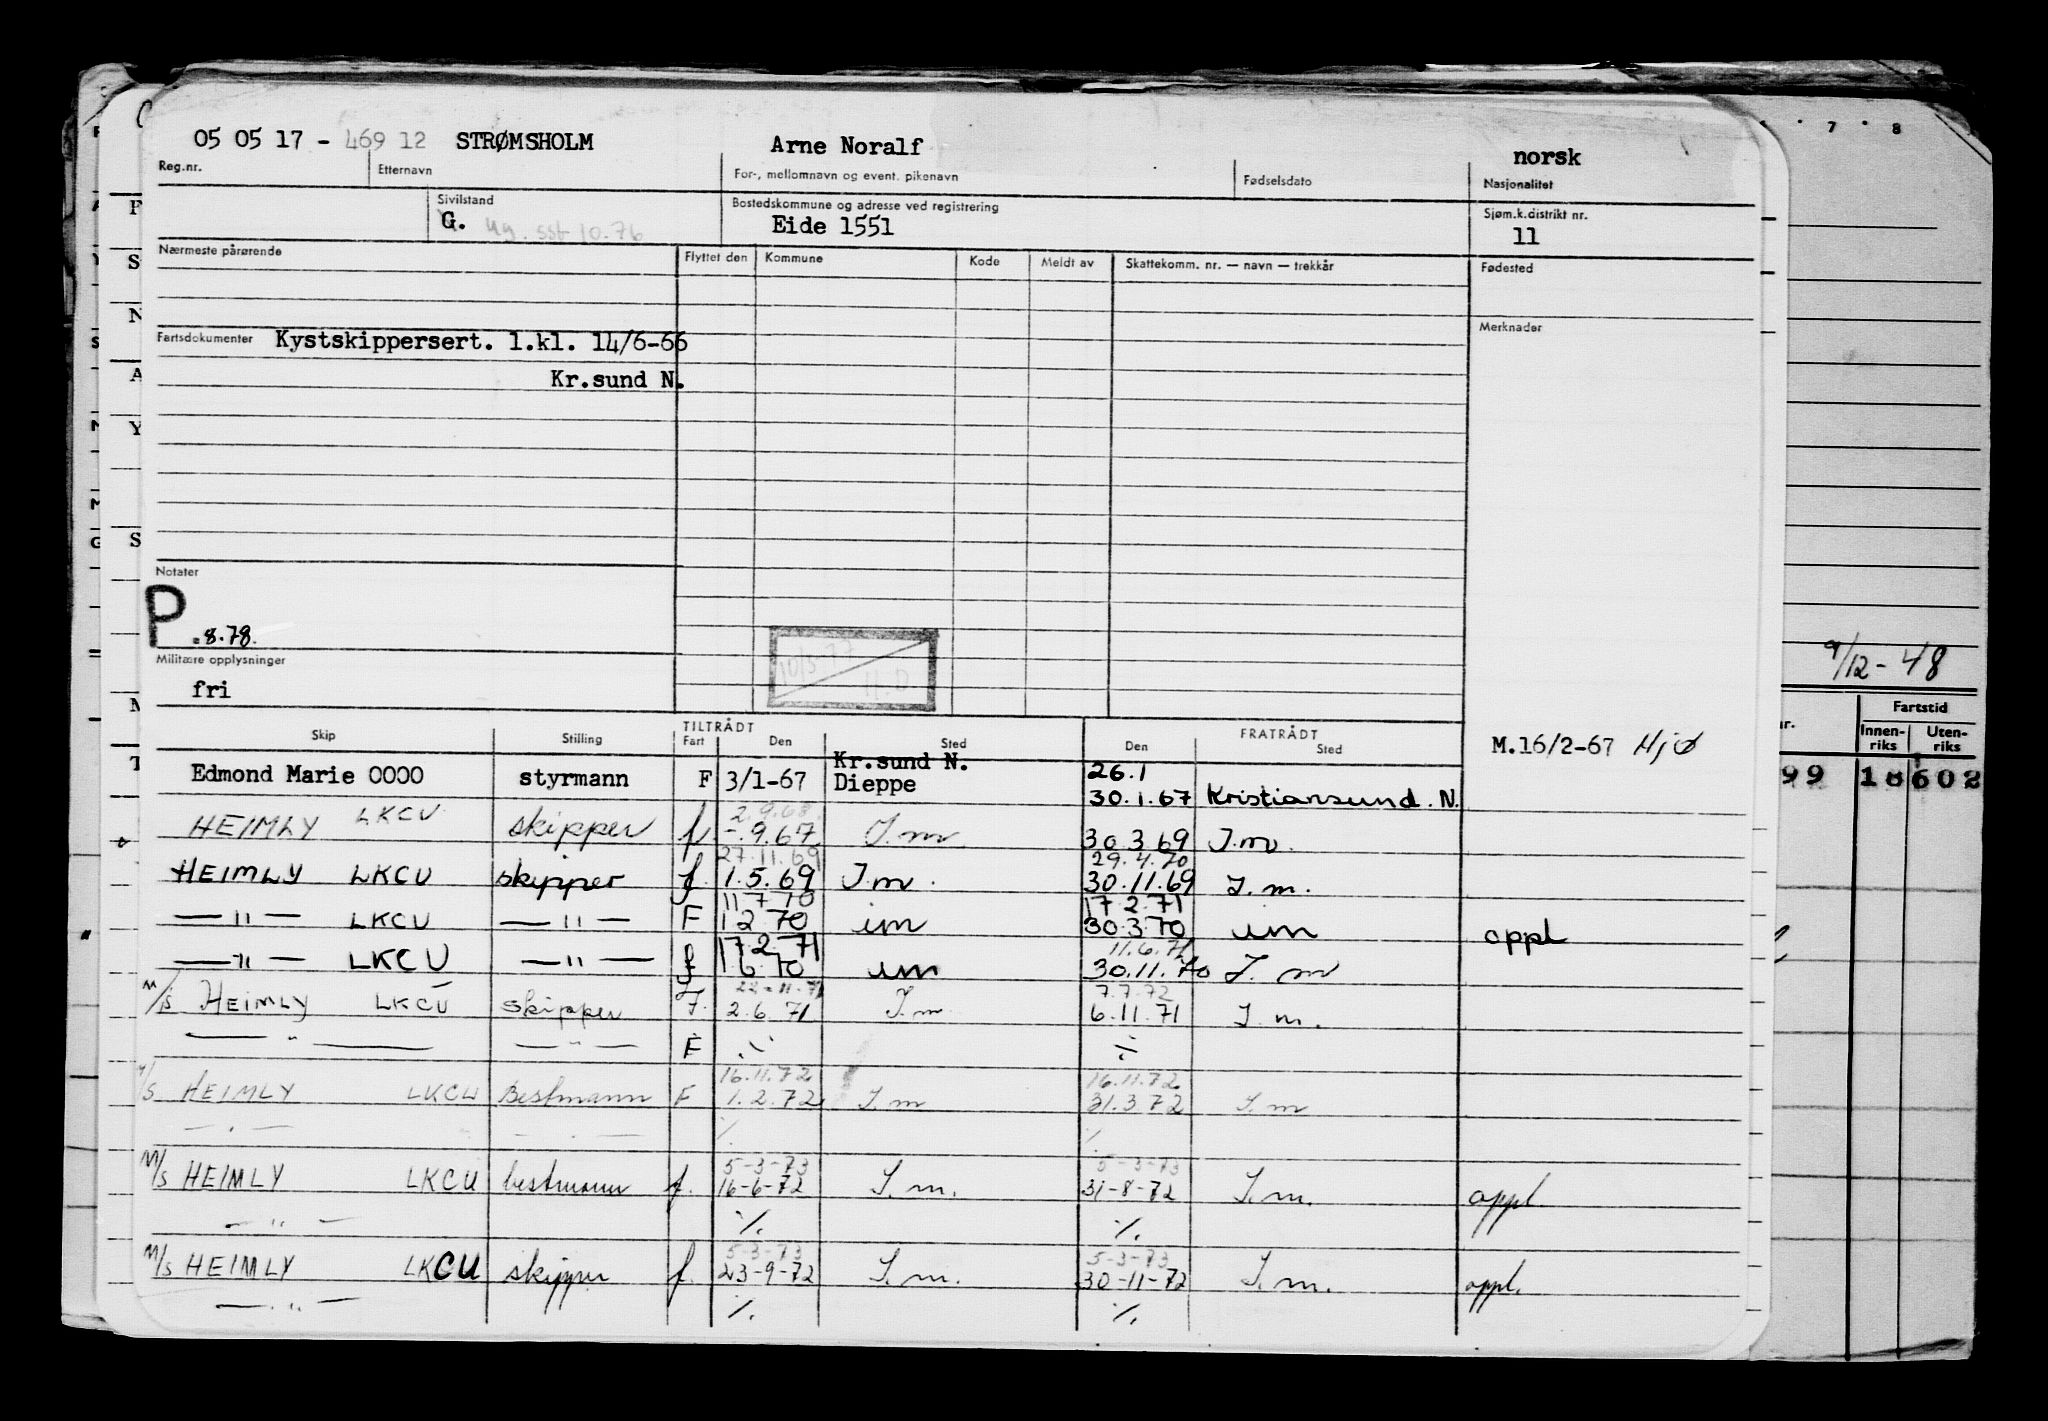 05 05 17 - 469 12 STRØMSHOLM Arne Noralf norsk
Reg.nr. Etternavn For-, mellomnavn og event. pikenavn Fødselsdato Nasjonalitet
Sivilstand Bostedskommune og adresse ved registrering Sjøm.k.distrikt nr.
G. ug. sst 10.76 Eide 1551 11
Nærmeste pårørende Flyttet den Kommune Kode Meldt av Skattekomm. nr. — navn — trekkår Fødested
Fartsdokumenter Kystskippersert. 1.kl. 14/6-66 Merknader
Kr.sund N.
Notater
P .8.78.
Militære opplysninger
fri
10/5-77 11.D
9/12-48
Fartstid
Innen-riks Uten-riks
99 18 602
TILTRÅDT FRATRÅDT
Skip Stilling Fart Den Sted Den Sted
M.16/2-67 Hjø
Kr.sund N. 26.1
Edmond Marie OOOO styrmann F 3/1-67 Dieppe 30.1.67 Kristiansund.N.
2.9.68
HEIMLY LKCU skipper f. -.9.67 I.m. 30.3.69 I.m.
27.11.69 29.4.70
HEIMLY LKCU skipper f. 1.5.69 I.m. 30.11.69 I.m.
11 7 70 17.2.71
—"— LKCU —"— F 1 2 70 im 30.3.70 im appl
17 2 71 11.6.71
—"— LKCU —"— f 1 6 70 im 30.11.70 I. m
22-11.71 7.7.72
M/S HEIMLY LKCU skipper F. 2.6.71 I.m 6.11.71 I.m.
—"— —"— F ./. ./.
16.11.72 16.11.72
M/S HEIMLY LKCU Bestmann F 1.2.72 I.m 31.3.72 I.m
—"— —"— ./. ./.
5-3-73 5-3-73
M/S HEIMLY LKCU bestmann f. 16-6-72 I.m. 31-8-72 I.m. appl.
—"— ./. ./.
5-3-73 5-3-73
M/S HEIMLY LKCU skipper f. 23-9-72 I.m. 30-11-72 I.m. appl.
—"— ./. ./.